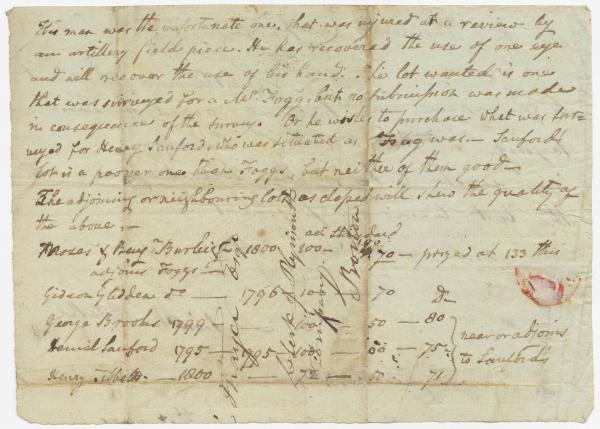 This man was the unfortunate one, that was injured at a review by
an artillery field piece. He has recovered the use of one eye
and will recover the use of his hand. The lot wanted is one
that was surveyed for a Mr Fogg, but no submission was made
in consequence of the survey. Or he wishes to purchase what was sur-
veyed for Henry Sanford, who was situated as Fogg was — Sanford's
lot is a poorer one than Foggs, but neither of them good —
The adjoining or neighbouring lots as closed will shew the quality of
the above: —
Moses & Benjn Burleigh 1800 — 100 — 70 — prized at 133 this
adjoins Foggs —
Gideon Glidden do — 1796 — 100 70 Do
George Brooks 1799 — 100 — 50 — 80
Daniel Sanford 1795 — 1795 — 100 — 60 — 75
Henry Tibbetts — 1800 — 72 — 50 — 71
near or adjoins
to Sanford's
Esqr
Clerk of Plymouth
Company
Boston